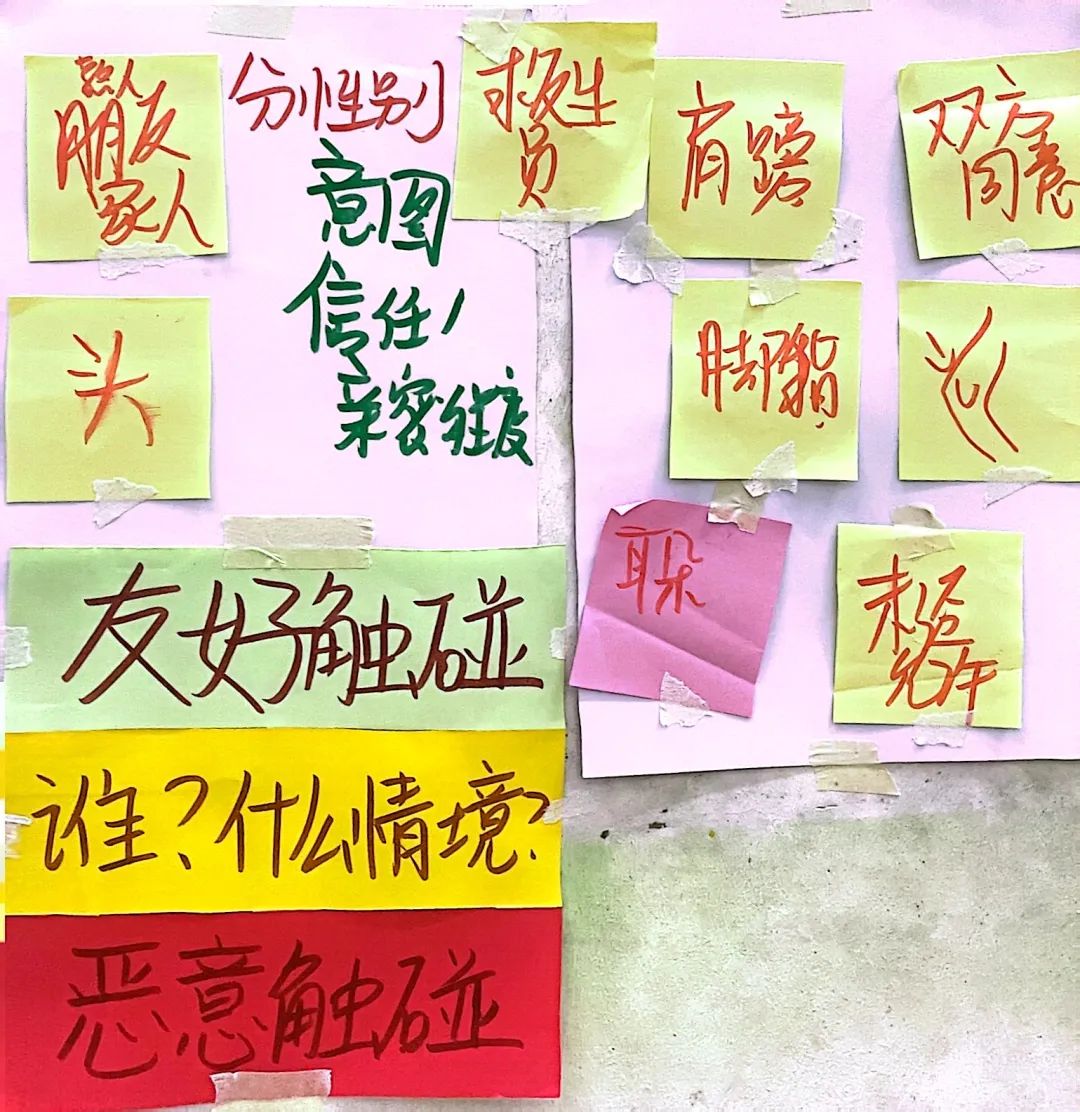 熟人
朋友
家人
分性别
意图
信任/
亲密程度
救生
员
肩膀
双方
同意
头
脚
耳朵
未经
允许
友好触碰
谁？什么情境？
恶意触碰